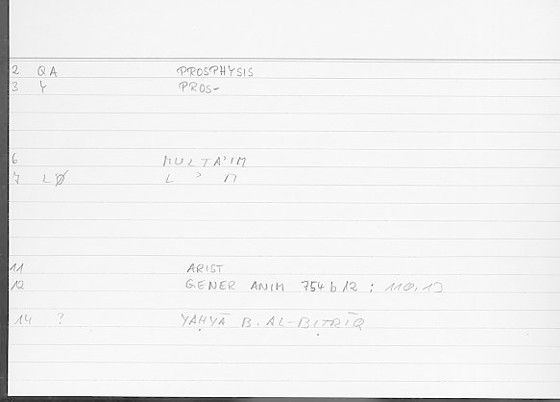 2 QA PROSPHYSIS
3 Y PROS-
6 MULTA'IM
7 LØ L ' M
11 ARIST
12 GENER ANIM 754 b 12 : 110.13
14 ? YAḤYĀ B. AL-BIṬRĪQ